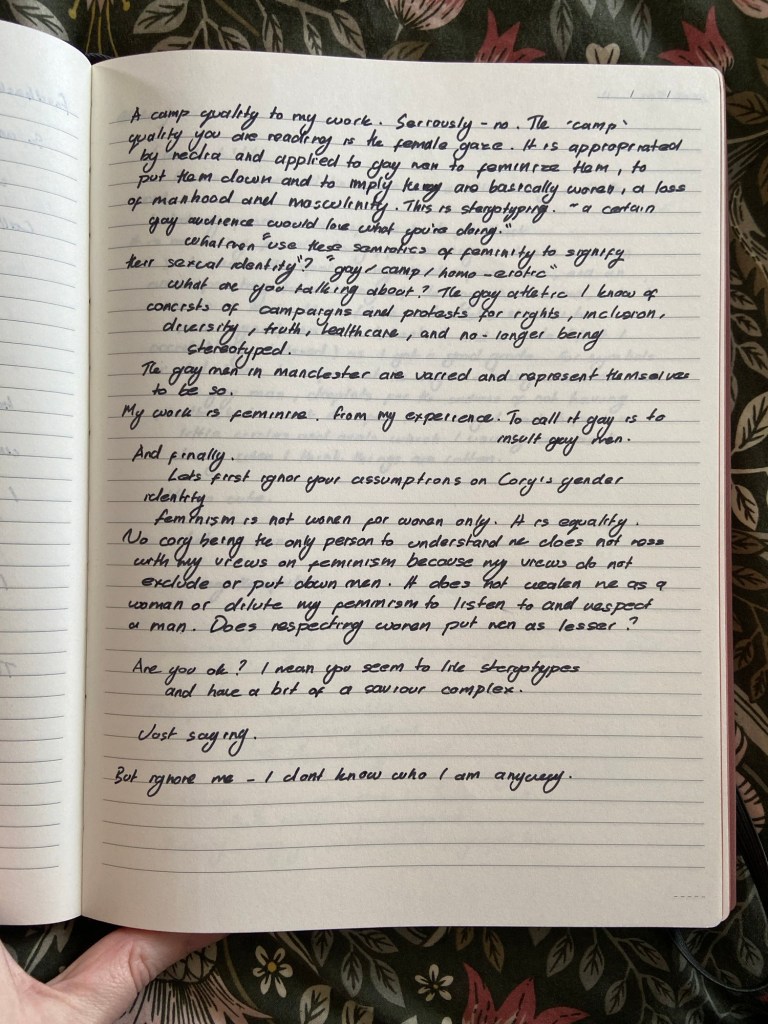 A camp quality to my work. Serriously - no. The 'camp'
quality you are reading is the female gaze. It is appropriated
by media and applied to gay men to feminize them, to
put them down and to imply they are basically women, a loss
of manhood and masculinity. This is stergotyping. "a certain
gay audience would love what you're doing."
What men "use these semiotics of feminity to signify
their sexual identity"? "gay/camp/homo-erotic"
What are you talking about? The gay athletic I know of
concists of campaigns and protests for rights, inclusion,
diversity, truth, healthcare, and no-longer being
stereotyped.
The gay men in manchester are varied and represent themselves
to be so.
My work is feminine. from my experience. To call it gay is to
insult gay men.
And finally.
Lets first ignor your assumptions on Cory's gender
identity
feminism is not women for women only. It is equality.
No cory being the only person to understand me does not mess
with my views on feminism because my views do not
exclude or put down men. It does not weaken me as a
woman or dilute my feminism to listen to and respect
a man. Does respecting women put men as lesser?
Are you ok? I mean you seem to like stergotypes
and have a bit of a saviour complex.
Just saying.
But ignore me - I dont know who I am anyway.